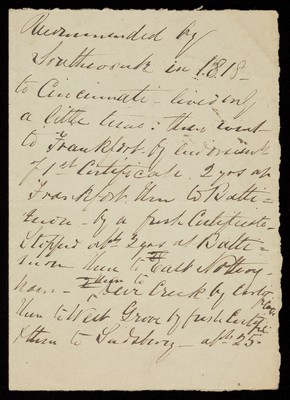 Recommended by
Southwark in 1818 -
to Cincinnati - lived only
a little time: then went
to Frankfort - by indorsement
of 1st Certificate. 2 yrs at
Frankfort. then to Balti=
more - by a fresh Certificate -
Stopped abt 2 yrs at Balti=
more then to East Notting-
ham - then to Deer Creek by
then to West Grove by fresh
& then to Sadsbury - 25 -